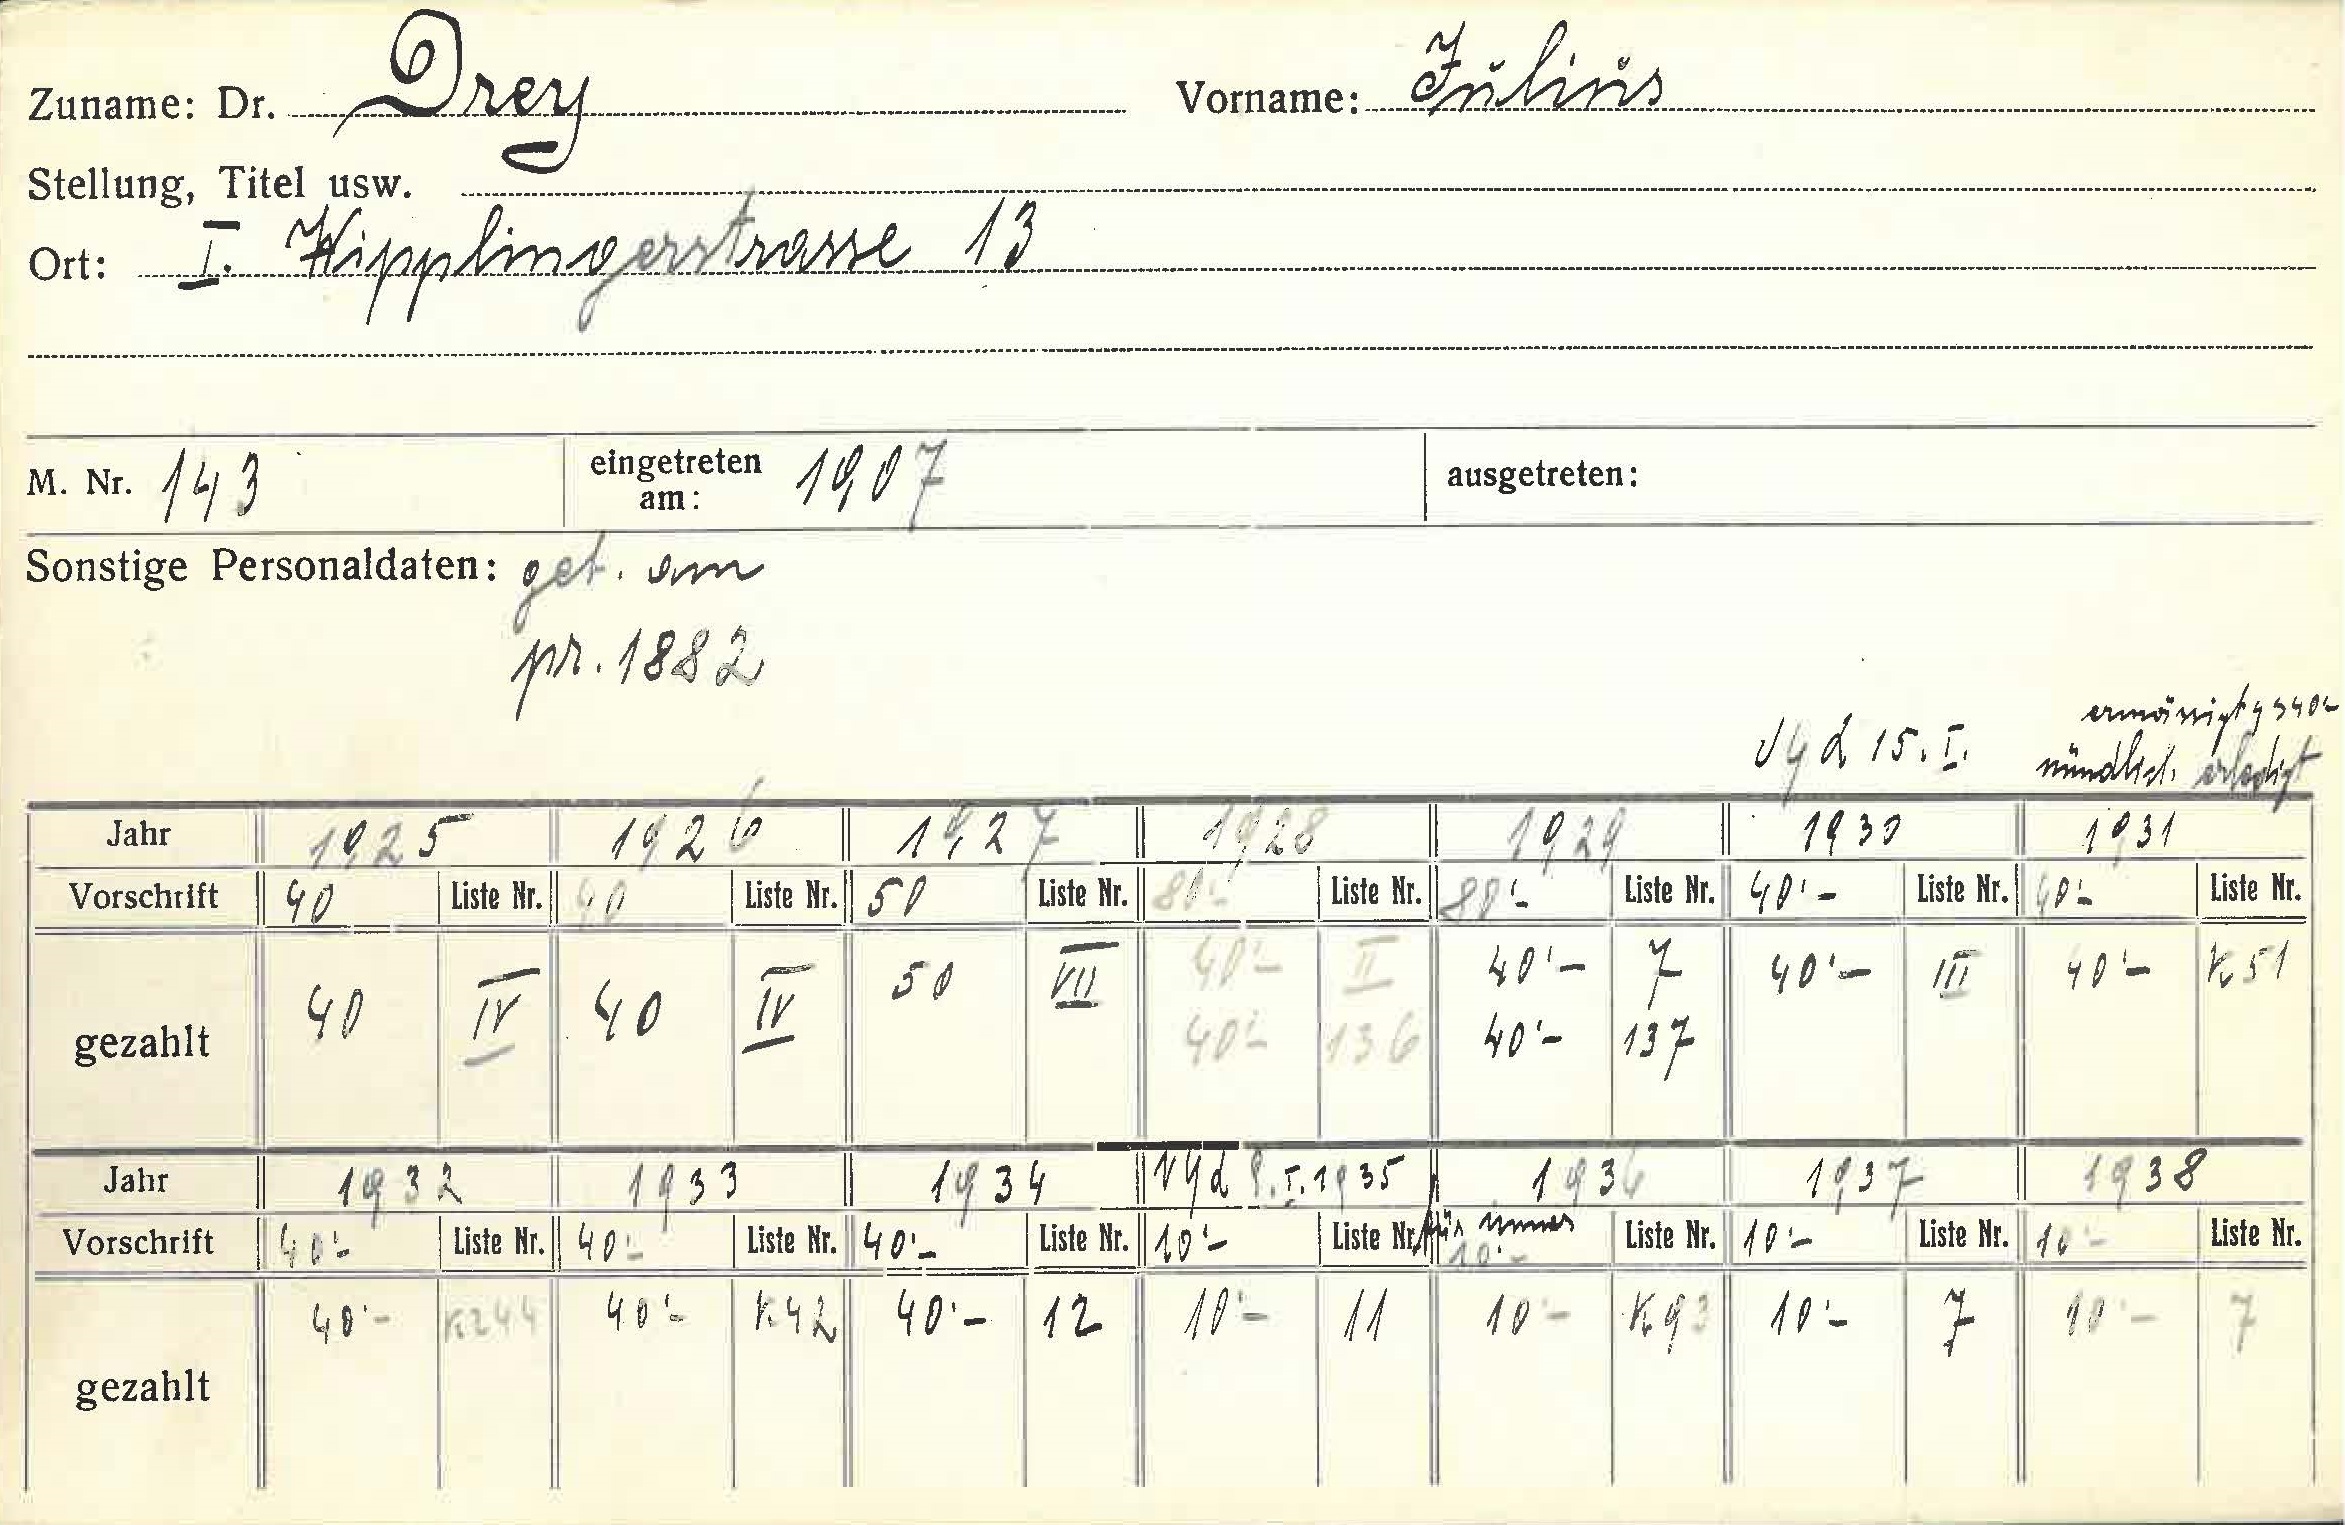 Zuname: Dr. Drey Vorname: Julius
Stellung, Titel usw.
Ort: I. Wipplingerstrasse 13
M. Nr. 143 eingetreten am: 1907 ausgetreten:
Sonstige Personaldaten: get. am
pr. 1882
ermässigt
Vgd 15. I. mündlich erledigt
Jahr 1925 1926 1927 1928 1929 1930 1931
Vorschrift 40 Liste Nr. 40 Liste Nr. 50 Liste Nr. 80'- Liste Nr. 80'- Liste Nr. 40'- Liste Nr. 40'- Liste Nr.
gezahlt 40 IV 40 IV 50 VII 40'- II 40'- 7 40'- III 40'- K51
40'- 136 40'- 137
Jahr 1932 1933 1934 Vgd I. 1935 1936 1937 1938
Vorschrift 40'- Liste Nr. 40'- Liste Nr. 40'- Liste Nr. 10'- Liste Nr. für immer 10'- Liste Nr. 10'- Liste Nr. 10'- Liste Nr.
gezahlt 40'- K244 40'- K42 40'- 12 10'- 11 10'- K93 10'- 7 10'- 7